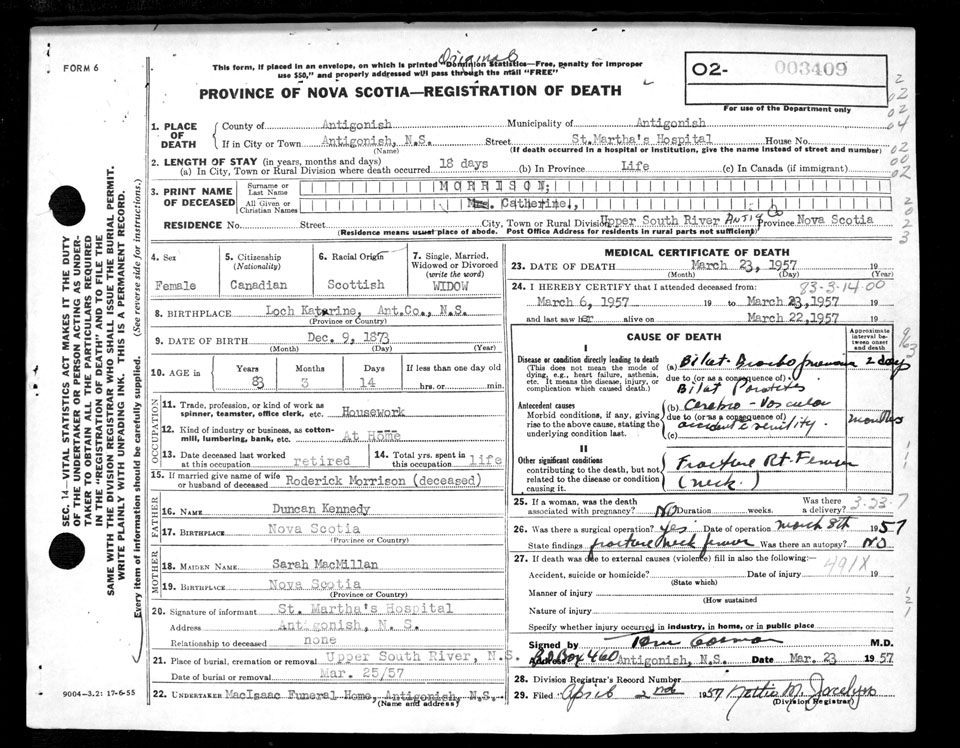 FORM 6
Original
This form, if placed in an envelope, on which is printed "Dominion Statistics—Free, penalty for improper
use $50," and properly addressed will pass through the mail "FREE"
PROVINCE OF NOVA SCOTIA—REGISTRATION OF DEATH
02- 003409
For use of the Department only
1. PLACE OF DEATH
County of Antigonish Municipality of Antigonish
If in City or Town Antigonish, N.S. Street St.Martha's Hospital House No.
(Name) (If death occurred in a hospital or institution, give the name instead of street and number)
2. LENGTH OF STAY (in years, months and days)
(a) In City, Town or Rural Division where death occurred 18 days (b) In Province Life (c) In Canada (if immigrant)
3. PRINT NAME OF DECEASED
Surname or Last Name MORRISON;
All Given or Christian Names Mrs. Catherine,
RESIDENCE No. Street City, Town or Rural Division Upper South River Antig Co Province Nova Scotia
(Residence means usual place of abode. Post Office Address for residents in rural parts not sufficient)
4. Sex
Female
5. Citizenship
(Nationality)
Canadian
6. Racial Origin
Scottish
7. Single, Married,
Widowed or Divorced
(write the word)
WIDOW
8. BIRTHPLACE Loch Katerine, Ant.Co., N.S.
(Province or Country)
9. DATE OF BIRTH Dec. 9, 1873
(Month) (Day) (Year)
10. AGE in
Years Months Days If less than one day old
83 3 14 hrs. or min.
OCCUPATION
11. Trade, profession, or kind of work as
spinner, teamster, office clerk, etc. Housework
12. Kind of industry or business, as cotton-
mill, lumbering, bank, etc. At Home
13. Date deceased last worked
at this occupation retired
14. Total yrs. spent in
this occupation life
15. If married give name of wife
or husband of deceased Roderick Morrison (deceased)
FATHER
16. NAME Duncan Kennedy
17. BIRTHPLACE Nova Scotia
(Province or Country)
MOTHER
18. MAIDEN NAME Sarah MacMillan
19. BIRTHPLACE Nova Scotia
(Province or Country)
20. Signature of informant St. Martha's Hospital
Address Antigonish, N. S.
Relationship to deceased none
21. Place of burial, cremation or removal Upper South River, N.S.
Date of burial or removal Mar. 25/57
22. UNDERTAKER MacIsaac Funeral Home, Antigonish, N.S.
(Name and address)
MEDICAL CERTIFICATE OF DEATH
23. DATE OF DEATH March 23, 1957 19
(Month) (Day) (Year)
24. I HEREBY CERTIFY that I attended deceased from: 83-3-14-00
March 6, 1957 19 to March 23,1957 19
and last saw her alive on March 22,1957 19
CAUSE OF DEATH
Approximate interval between onset and death
I
Disease or condition directly leading to death
(This does not mean the mode of
dying, e.g., heart failure, asthenia,
etc. It means the disease, injury, or
complication which caused death.)
(a) Bilat. Broncho pneumonia 2 days
due to (or as a consequence of)
Bilat Parotitis
Antecedent causes
Morbid conditions, if any, giving
rise to the above cause, stating the
underlying condition last.
(b) Cerebro-Vascular
due to (or as a consequence of)
accident & senility. months
(c)
II
Other significant conditions
contributing to the death, but not
related to the disease or condition
causing it.
Fracture Rt. Femur
(neck.)
25. If a woman, was the death
associated with pregnancy? NO Duration weeks. Was there
a delivery? 3-23-7
26. Was there a surgical operation? Yes Date of operation March 8th 1957
State findings fracture neck femur Was there an autopsy? NO
27. If death was due to external causes (violence) fill in also the following:
491X
Accident, suicide or homicide? Date of injury 19
(State which)
Manner of injury
(How sustained
Nature of injury
Specify whether injury occurred in industry, in home, or in public place
Signed by M.D.
Address P.O Box 460 Antigonish, N.S. Date Mar. 23 1957
28. Division Registrar's Record Number
29. Filed April 2nd 1957 Nettie M. Jocelyn
(Division Registrar)
SEC. 14—VITAL STATISTICS ACT MAKES IT THE DUTY
OF THE UNDERTAKER OR PERSON ACTING AS UNDER-
TAKER TO OBTAIN ALL THE PARTICULARS REQUIRED
IN THE "REGISTRATION OF DEATH" AND TO FILE THE
SAME WITH THE DIVISION REGISTRAR WHO SHALL ISSUE THE BURIAL PERMIT.
WRITE PLAINLY WITH UNFADING INK. THIS IS A PERMANENT RECORD.
Every item of information should be carefully supplied. (See reverse side for instructions.)
9004-3.2: 17-6-55